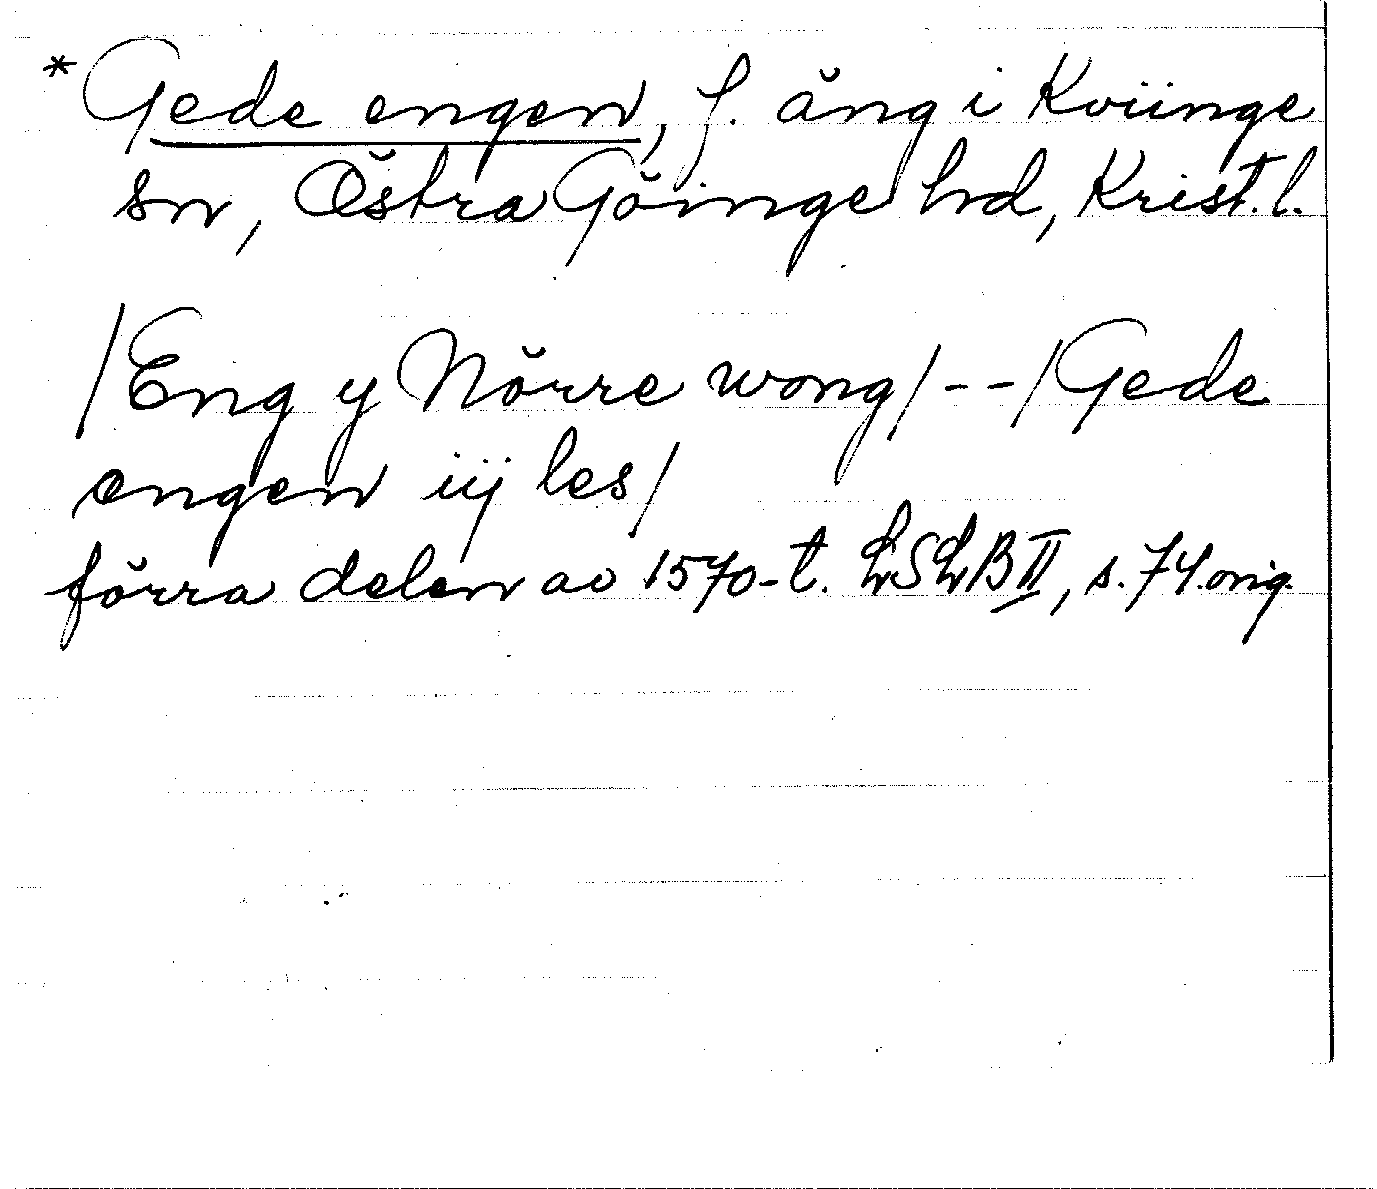 *Gede engen, f. äng i Kviinge
sn, Östra Göinge hd, Krist. l.
/Eng y Nörre wong/--/Gede
engen iij les/
förra delen av 1570-t. LSLB II, s. 74. orig.